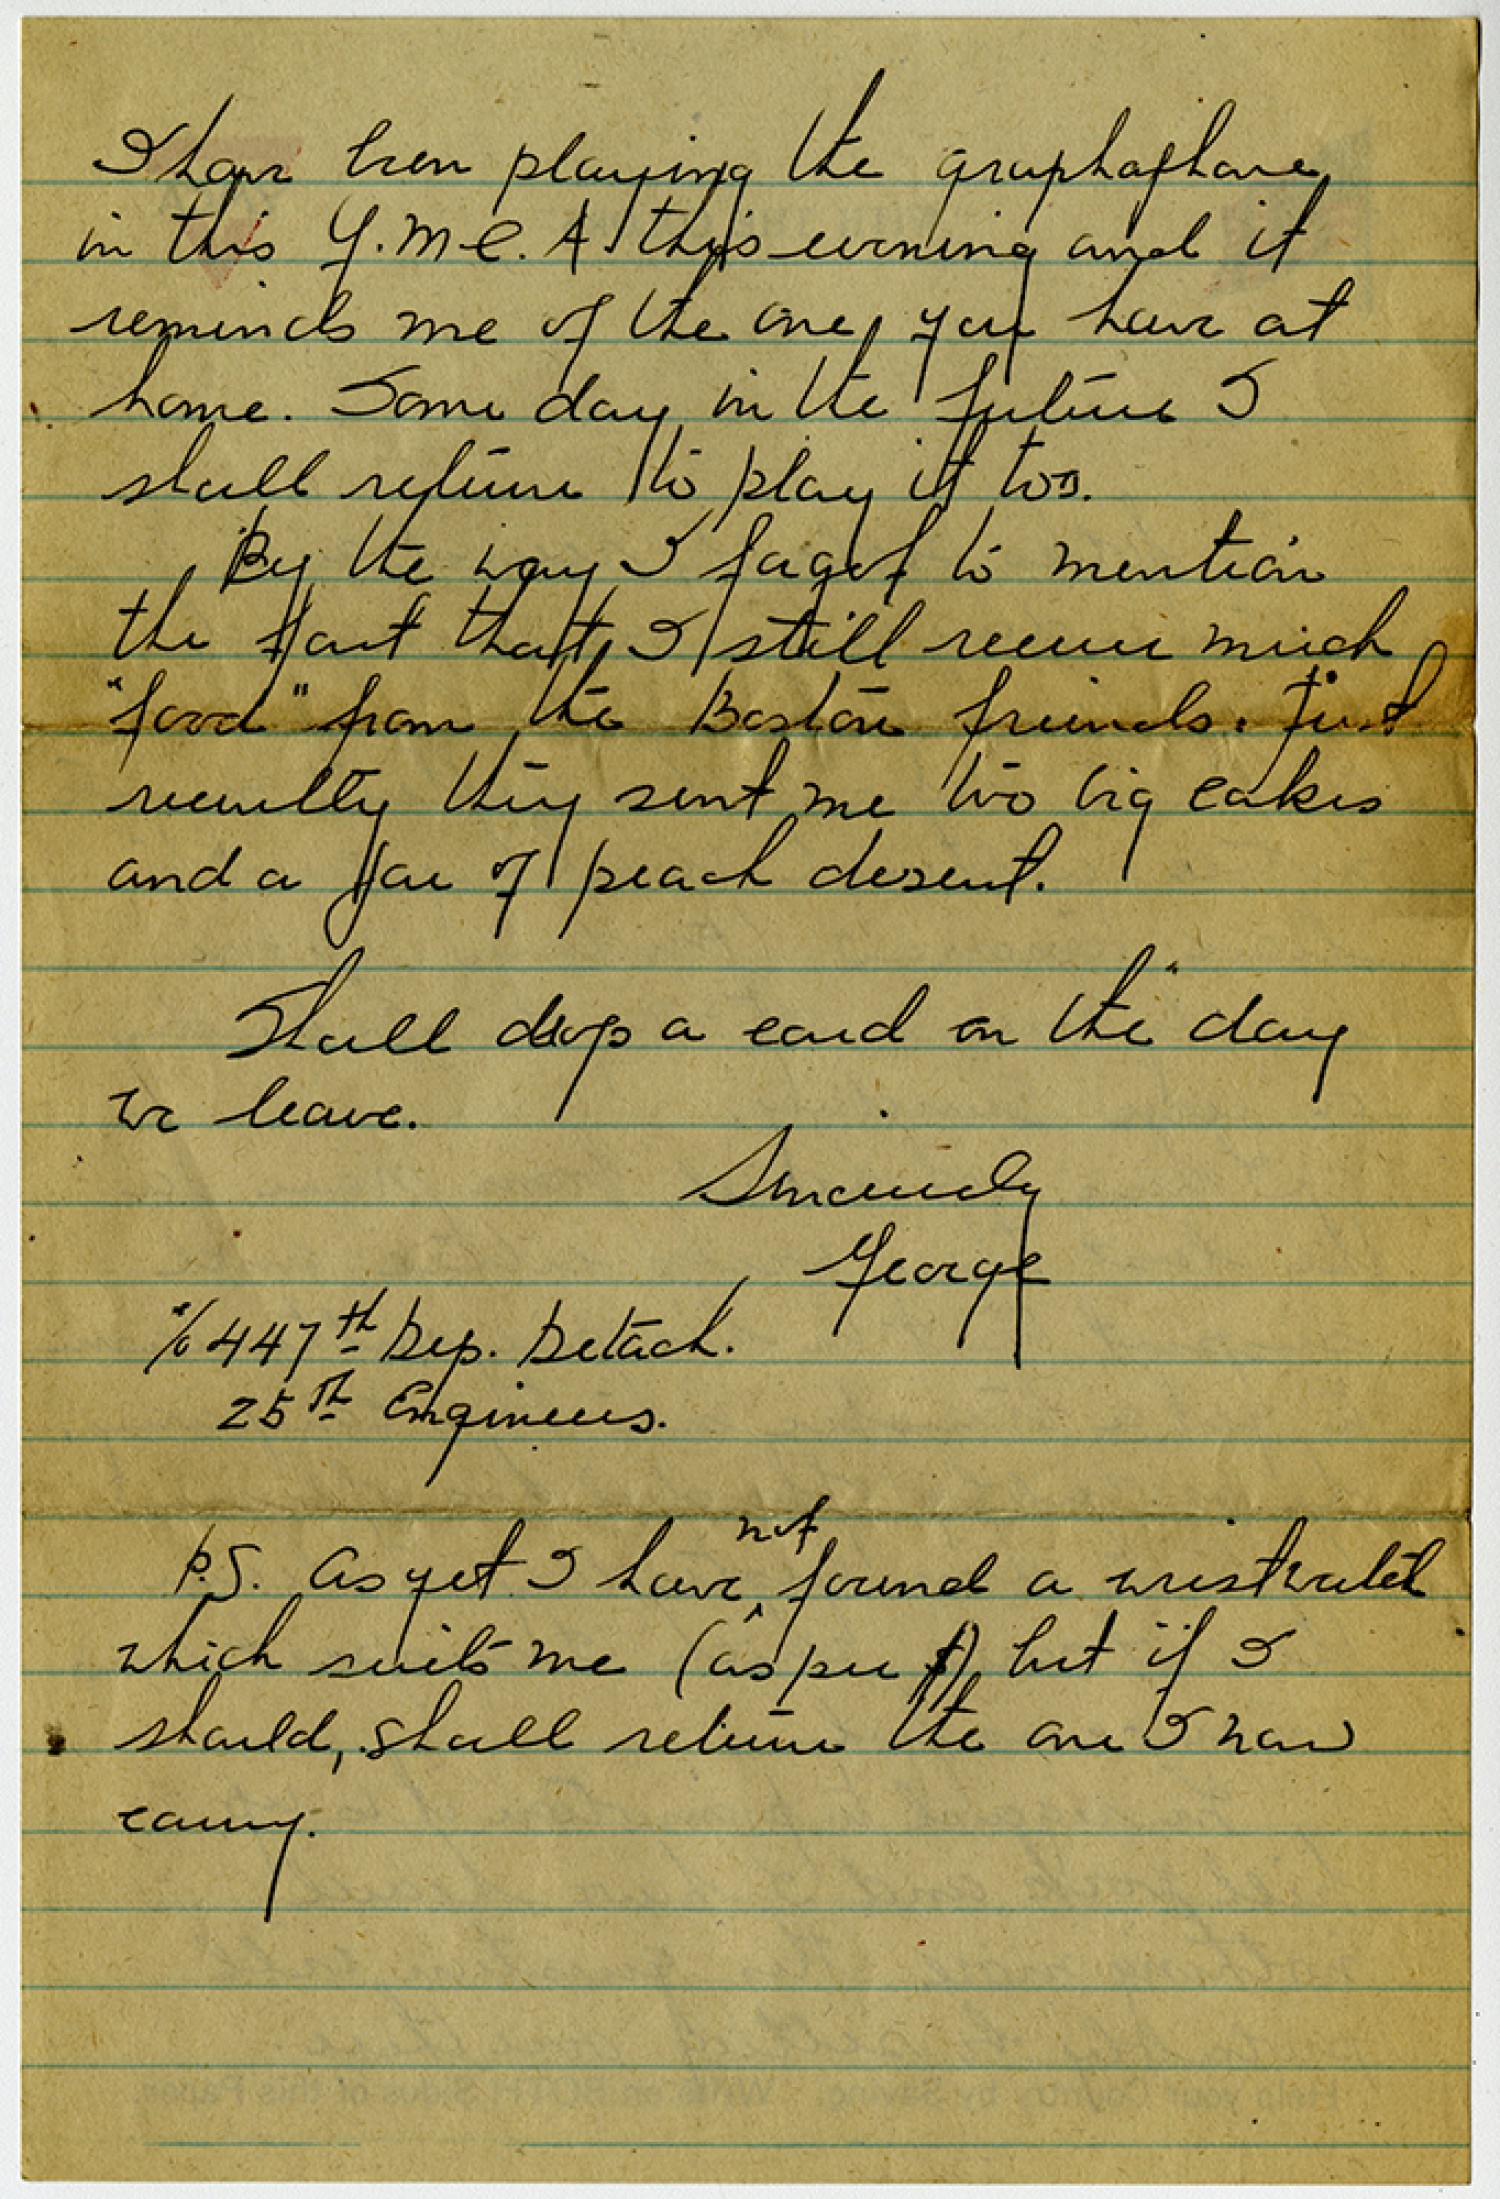 I have been playing the graphaphone
in this Y.M.C.A. this evening and it
reminds me of the one, you have at
home. Some day in the future I
shall return to play it too.
By the way I forgot to mention
the fact that, I still receive much
"food" from the Boston friends. Just
recently they sent me two big cakes
and a jar of peach desert.
Shall drop a card on the "day
we leave.
Sincerely
George
c/o 447th Dep. Detach.
25th Engineers.
P.S. As yet I have not found a wristwatch
which suits me (as per $) but if I
should, shall return the one I now
carry.
Help your Country by Saving. Write on BOTH Sides of this Paper